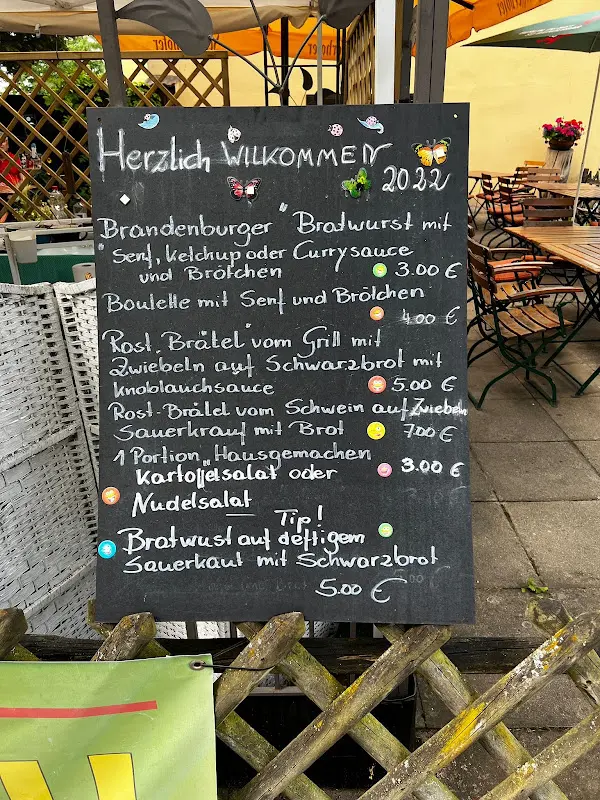 Herzlich WILLKOMMEN 2022
Brandenburger "Bratwurst mit
"Senf, Ketchup oder Currysauce
und Brötchen 3.00 €
Boulette mit Senf und Brötchen
4.00 €
Rost "Brätel" vom Grill mit
Zwiebeln auf Schwarzbrot mit
Knoblauchsauce 5.00 €
Rost-Brätel vom Schwein auf Zwiebeln
Sauerkraut mit Brot 7.00 €
1 Portion "Hausgemachen
Kartoffelsalat oder 3.00 €
Nudelsalat
Tip!
Bratwust auf deftigem
Sauerkaut mit Schwarzbrot
5.00 €